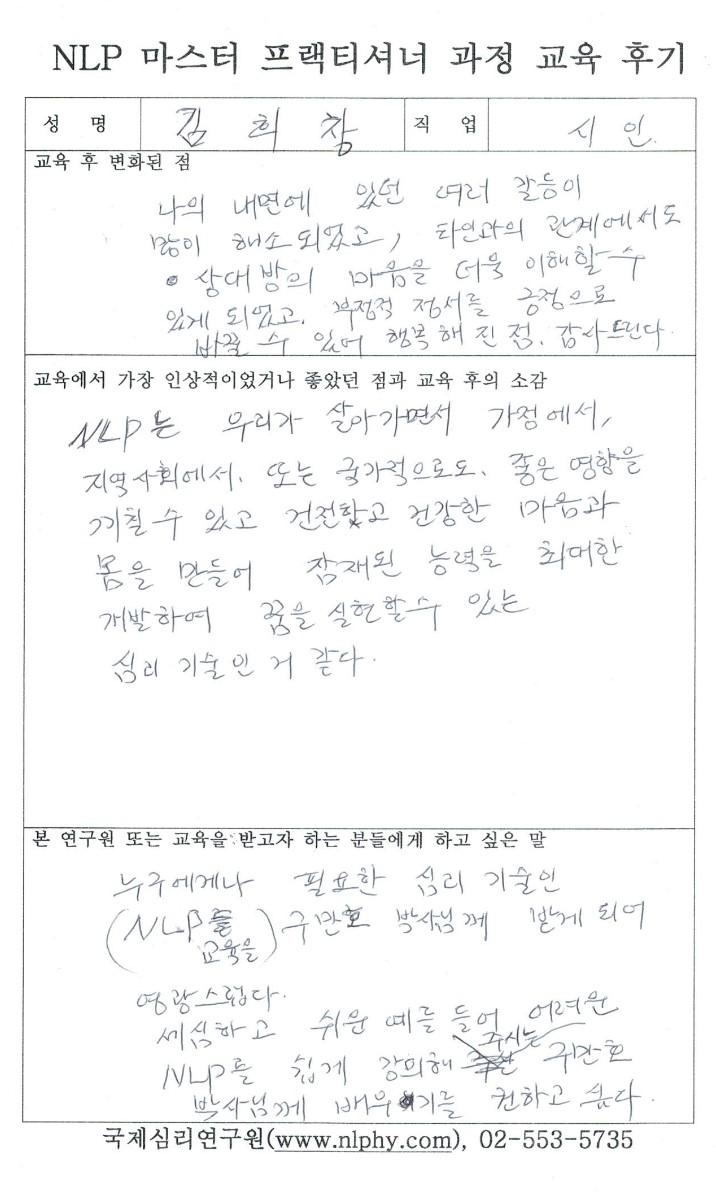 NLP 마스터 프랙티셔너 과정 교육 후기
성 명 김 희 창 직 업 시 인.
교육 후 변화된 점
나의 내면에 있던 여러 갈등이
많이 해소 되었고, 타인과의 관계에서도
상대방의 마음을 더욱 이해할 수
있게 되었고. 부정적 정서를 긍정으로
바꿀 수 있어 행복해 진 점. 감사드린다.
교육에서 가장 인상적이었거나 좋았던 점과 교육 후의 소감
NLP는 우리가 살아가면서 가정에서,
지역사회에서. 또는 국가적으로도. 좋은 영향을
끼칠 수 있고 건전하고 건강한 마음과
몸을 만들어 잠재된 능력을 최대한
개발하여 꿈을 실현할 수 있는
심리 기술인 거 같다.
본 연구원 또는 교육을 받고자 하는 분들에게 하고 싶은 말
누구에게나 필요한 심리 기술인
(NLP를 교육을) 구만호 박사님께 받게 되어
영광스럽다.
세심하고 쉬운 예를 들어 어려운
NLP를 쉽게 강의해 주시는 구만호
박사님께 배우기를 권하고 싶다.
국제심리연구원(www.nlphy.com), 02-553-5735